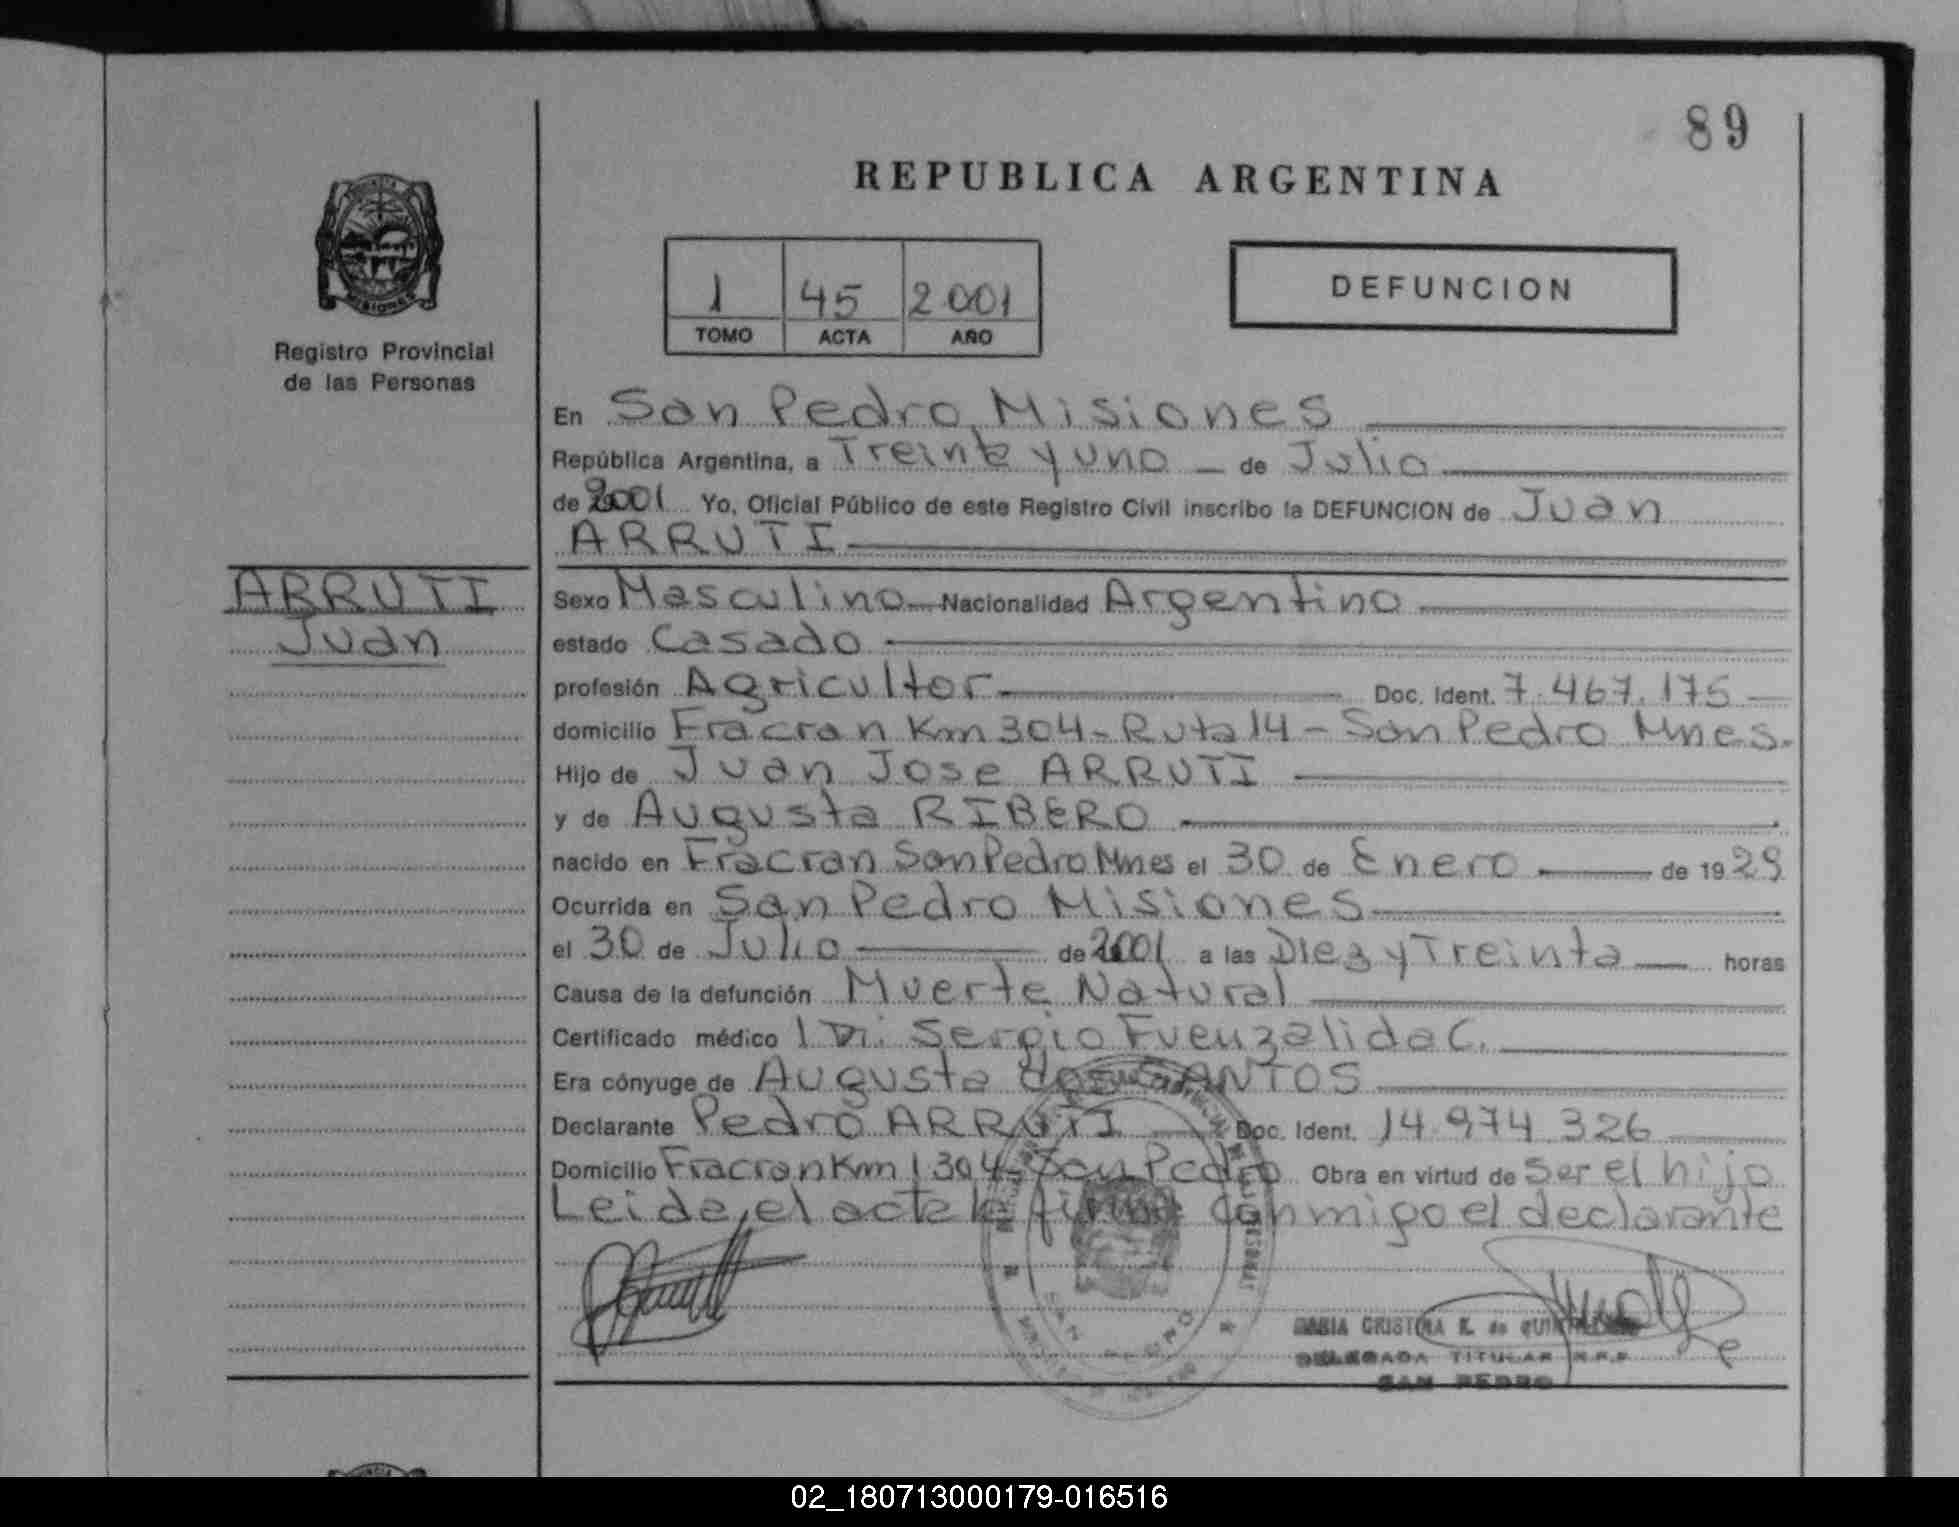 89
REPUBLICA ARGENTINA
1 45 2001
TOMO ACTA AÑO
DEFUNCION
Registro Provincial
de las Personas
En San Pedro Misiones
República Argentina, a Treinta y uno de Julio
de 2001 Yo, Oficial Público de este Registro Civil inscribo la DEFUNCION de Juan
ARRUTI
ARRUTI
Juan
Sexo Masculino Nacionalidad Argentino
estado Casado
profesión Agricultor Doc. Ident. 7.467.175
domicilio Fracran Km 304 - Ruta 14 - San Pedro Mnes.
Hijo de Juan Jose ARRUTI
y de Augusta RIBERO
nacido en Fracran San Pedro Mnes el 30 de Enero de 1929
Ocurrida en San Pedro Misiones
el 30 de Julio de 2001 a las Diez y Treinta horas
Causa de la defunción Muerte Natural
Certificado médico Sergio Fuenzalida C.
Era cónyuge de Augusta dos SANTOS
Declarante Pedro ARRUTI Doc. Ident. 14.974.326
Domicilio Fracran Km 1304 - San Pedro Obra en virtud de Ser el hijo
Leida el acta la firma conmigo el declarante
MARIA CRISTINA de
DELEGADA TITULAR R.P.P.
SAN PEDRO
02_180713000179-016516